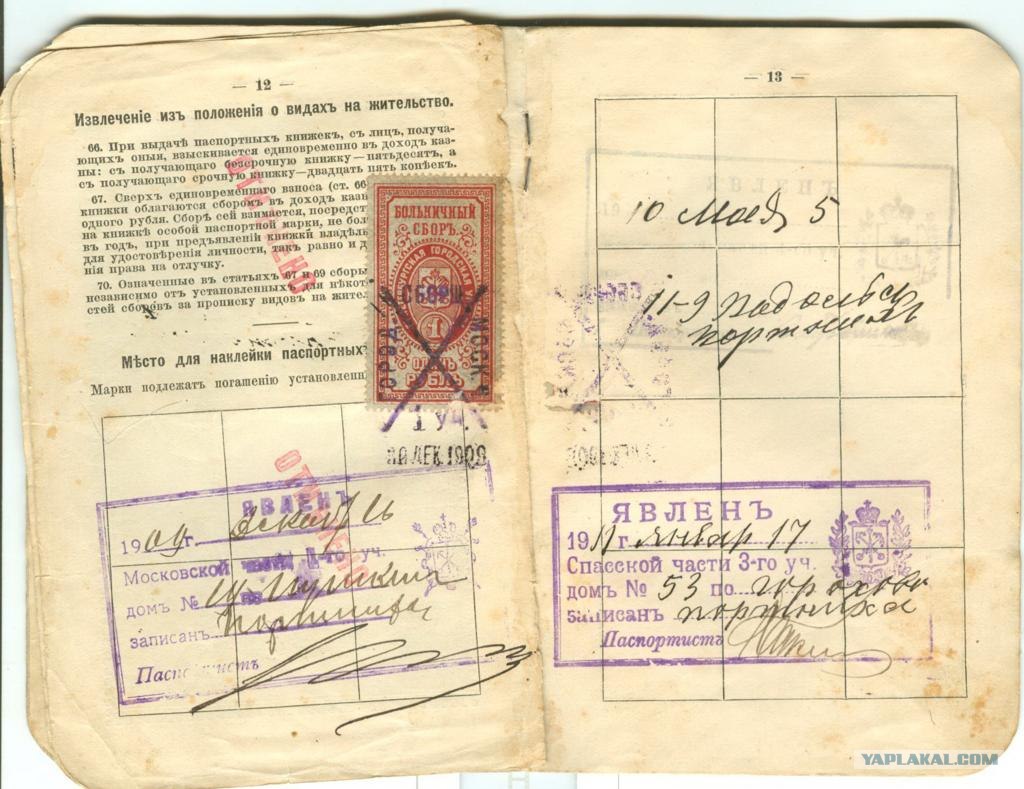 — 12 —
Извлеченіе изъ положенія о видахъ на жительство.
66. При выдачѣ паспортныхъ книжекъ, съ лицъ, получа-
ющихъ оныя, взыскивается единовременно въ доходъ каз-
ны: съ получающаго безсрочную книжку—пятьдесятъ, а
съ получающаго срочную книжку—двадцать пять копѣекъ.
67. Сверхъ единовременнаго взноса (ст. 66
книжки облагаются сборомъ въ доходъ казн
одного рубля. Сборъ сей взимается, посредст
на книжкѣ особой паспортной марки, не бол
въ годъ, при предъявленіи книжки владѣль
для удостовѣренія личности, такъ равно и д
нія права на отлучку.
70. Означенные въ статьяхъ 67 и 69 сборы
независимо отъ установленныхъ для нѣкот
стей сборовъ за прописку видовъ на жител
ОТМѢНЕНО
Мѣсто для наклейки паспортных
Марки подлежатъ погашенію установленн
БОЛЬНИЧНЫЙ
СБОРЪ.
1
ОДИНЪ
РУБЛЬ
1 уч.
30 ДЕК. 1909
ОТМѢНЕНО
ЯВЛЕНЪ
1909 г.
Московской части 1-го уч.
домъ №
записанъ
Паспортистъ
— 13 —
10 Мая 5
11-9
ЯВЛЕНЪ
1911 г. январ 17
Спасской части 3-го уч.
домъ № 53 по Горохово
записанъ портниха
Паспортистъ
YAPLAKAL.COM